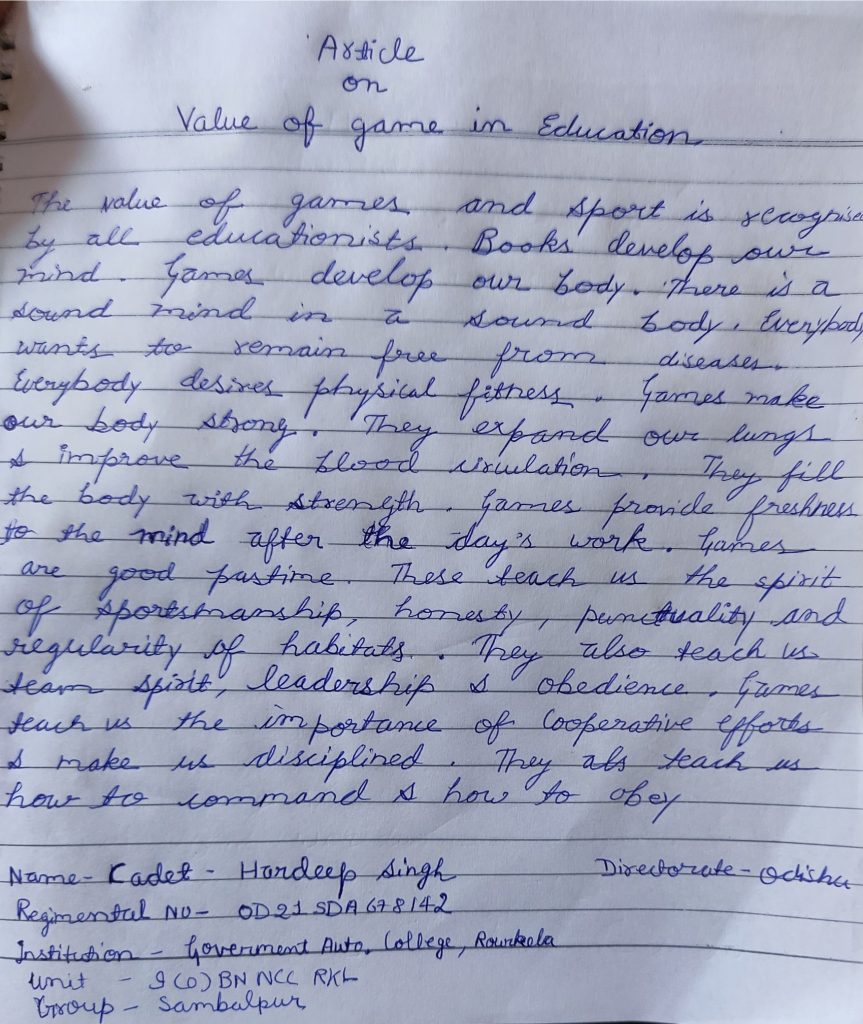 Article
on
Value of game in Education
The value of games and sport is recognised
by all educationists. Books develop our
mind. Games develop our body. There is a
sound mind in a sound body. Everybody
wants to remain free from diseases.
Everybody desires physical fitness. Games make
our body strong. They expand our lungs
& improve the blood circulation. They fill
the body with strength. Games provide freshness
to the mind after the day's work. Games
are good pastime. These teach us the spirit
of sportsmanship, honesty, punctuality and
regularity of habitats. They also teach us
team spirit, leadership & obedience. Games
teach us the importance of Cooperative efforts
& make us disciplined. They als teach us
how to command & how to obey
Name- Cadet - Hardeep Singh Directorate - Odisha
Regimental No- OD21SDA678142
Institution - Goverment Auto. College, Rourkela
Unit - 9 (O) BN NCC RKL
Group - Sambalpur